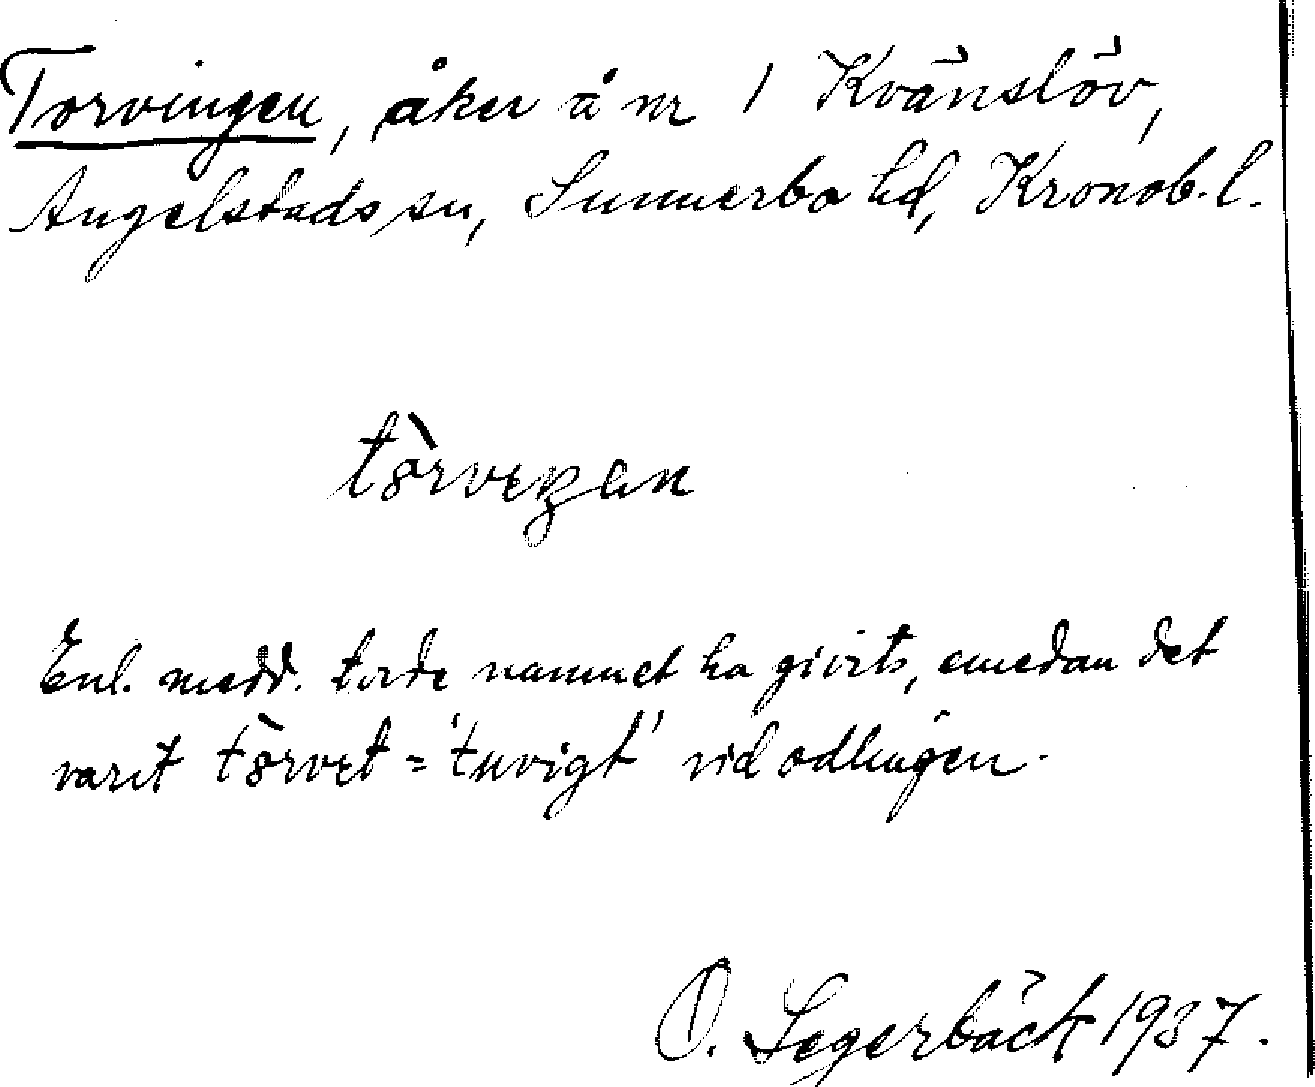 Torvingen, åker å nr 1 Kvänslöv,
Angelstads sn, Sunnerbo hd, Kronob. l.
tòrveŋan
Enl. medd. torde namnet ha givits, emedan det
varit tòrvet = 'tuvigt' vid odlingen.
O. Segerbäck 1937.